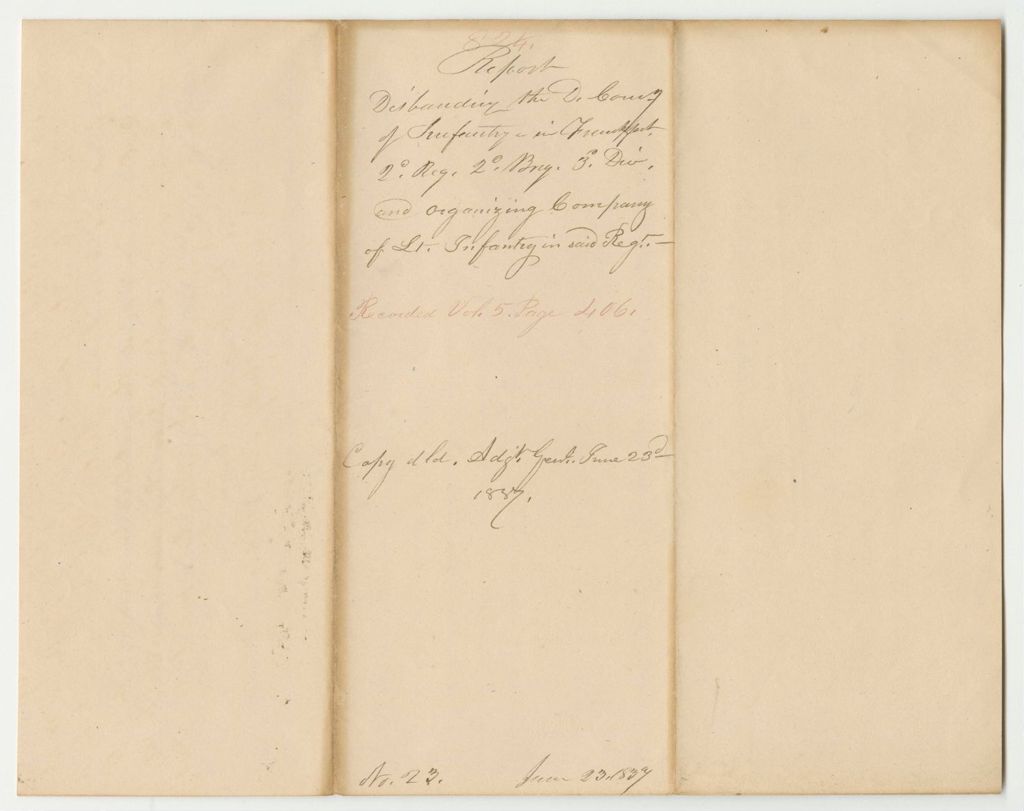 824.
Report
Disbanding the D. Compy
of Infantry in Frankfort
2d. Reg. 2d. Brig. 3d. Div.
and organizing Company
of Lt. Infantry in said Regt.
Recorded Vol. 5. Page 406.
Copy dld. Adjt. Genl. June 23d
1837.
No. 23. June 23. 1837